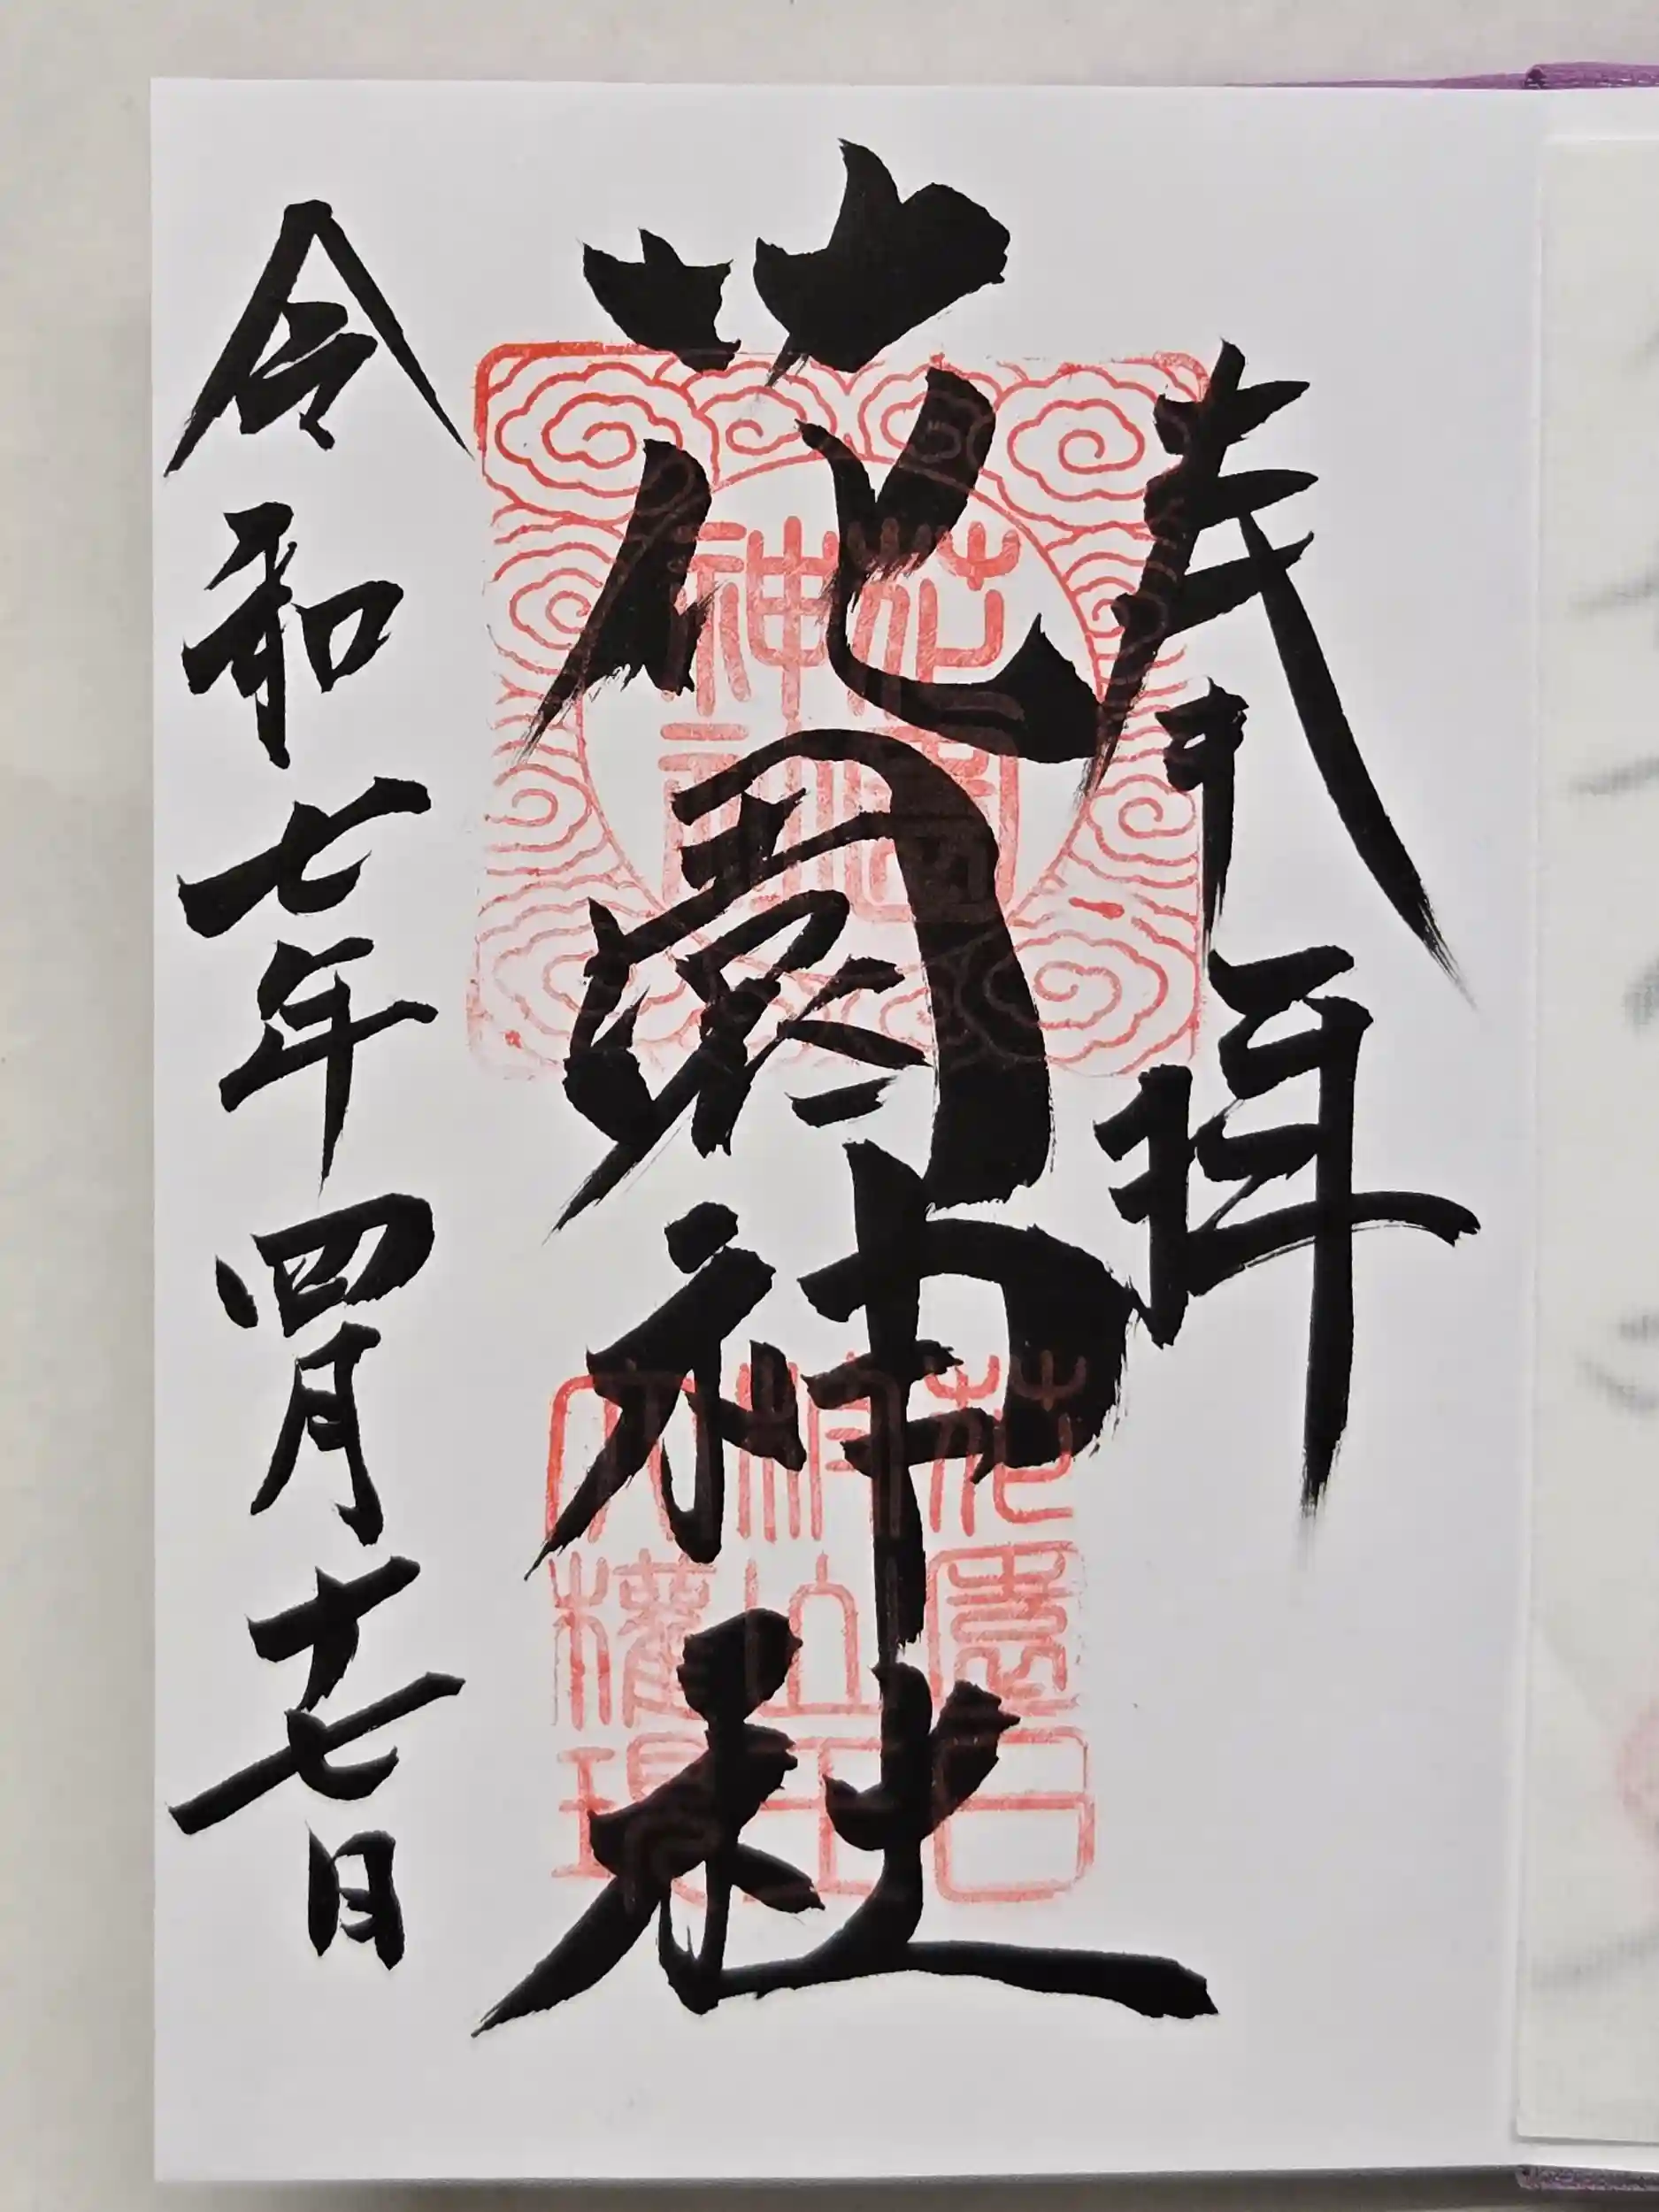 奉拝
花園神社
令和七年四月十七日
花園
神社
花園
大権現